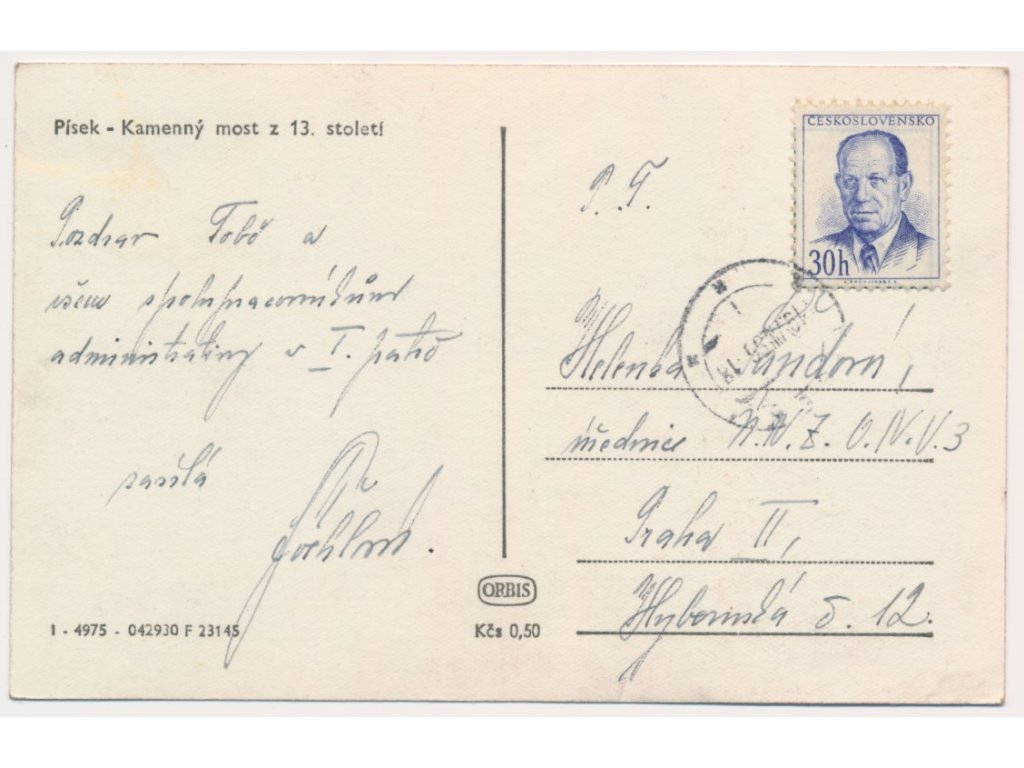 Písek - Kamenný most z 13. století
Pozdrav Tobě a
všem spolupracovníkům
administrativy v I. patře
zasílá
1 - 4975 - 042930 F 23145
ORBIS
Kčs 0,50
ČESKOSLOVENSKO
30h
P. T.
Helenka
úřednice N.V.Z. O.IV.V.3
Praha II,
Hybernská č. 12.